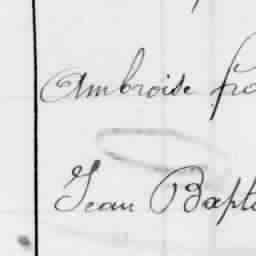 Ambroise
Jean Bapt